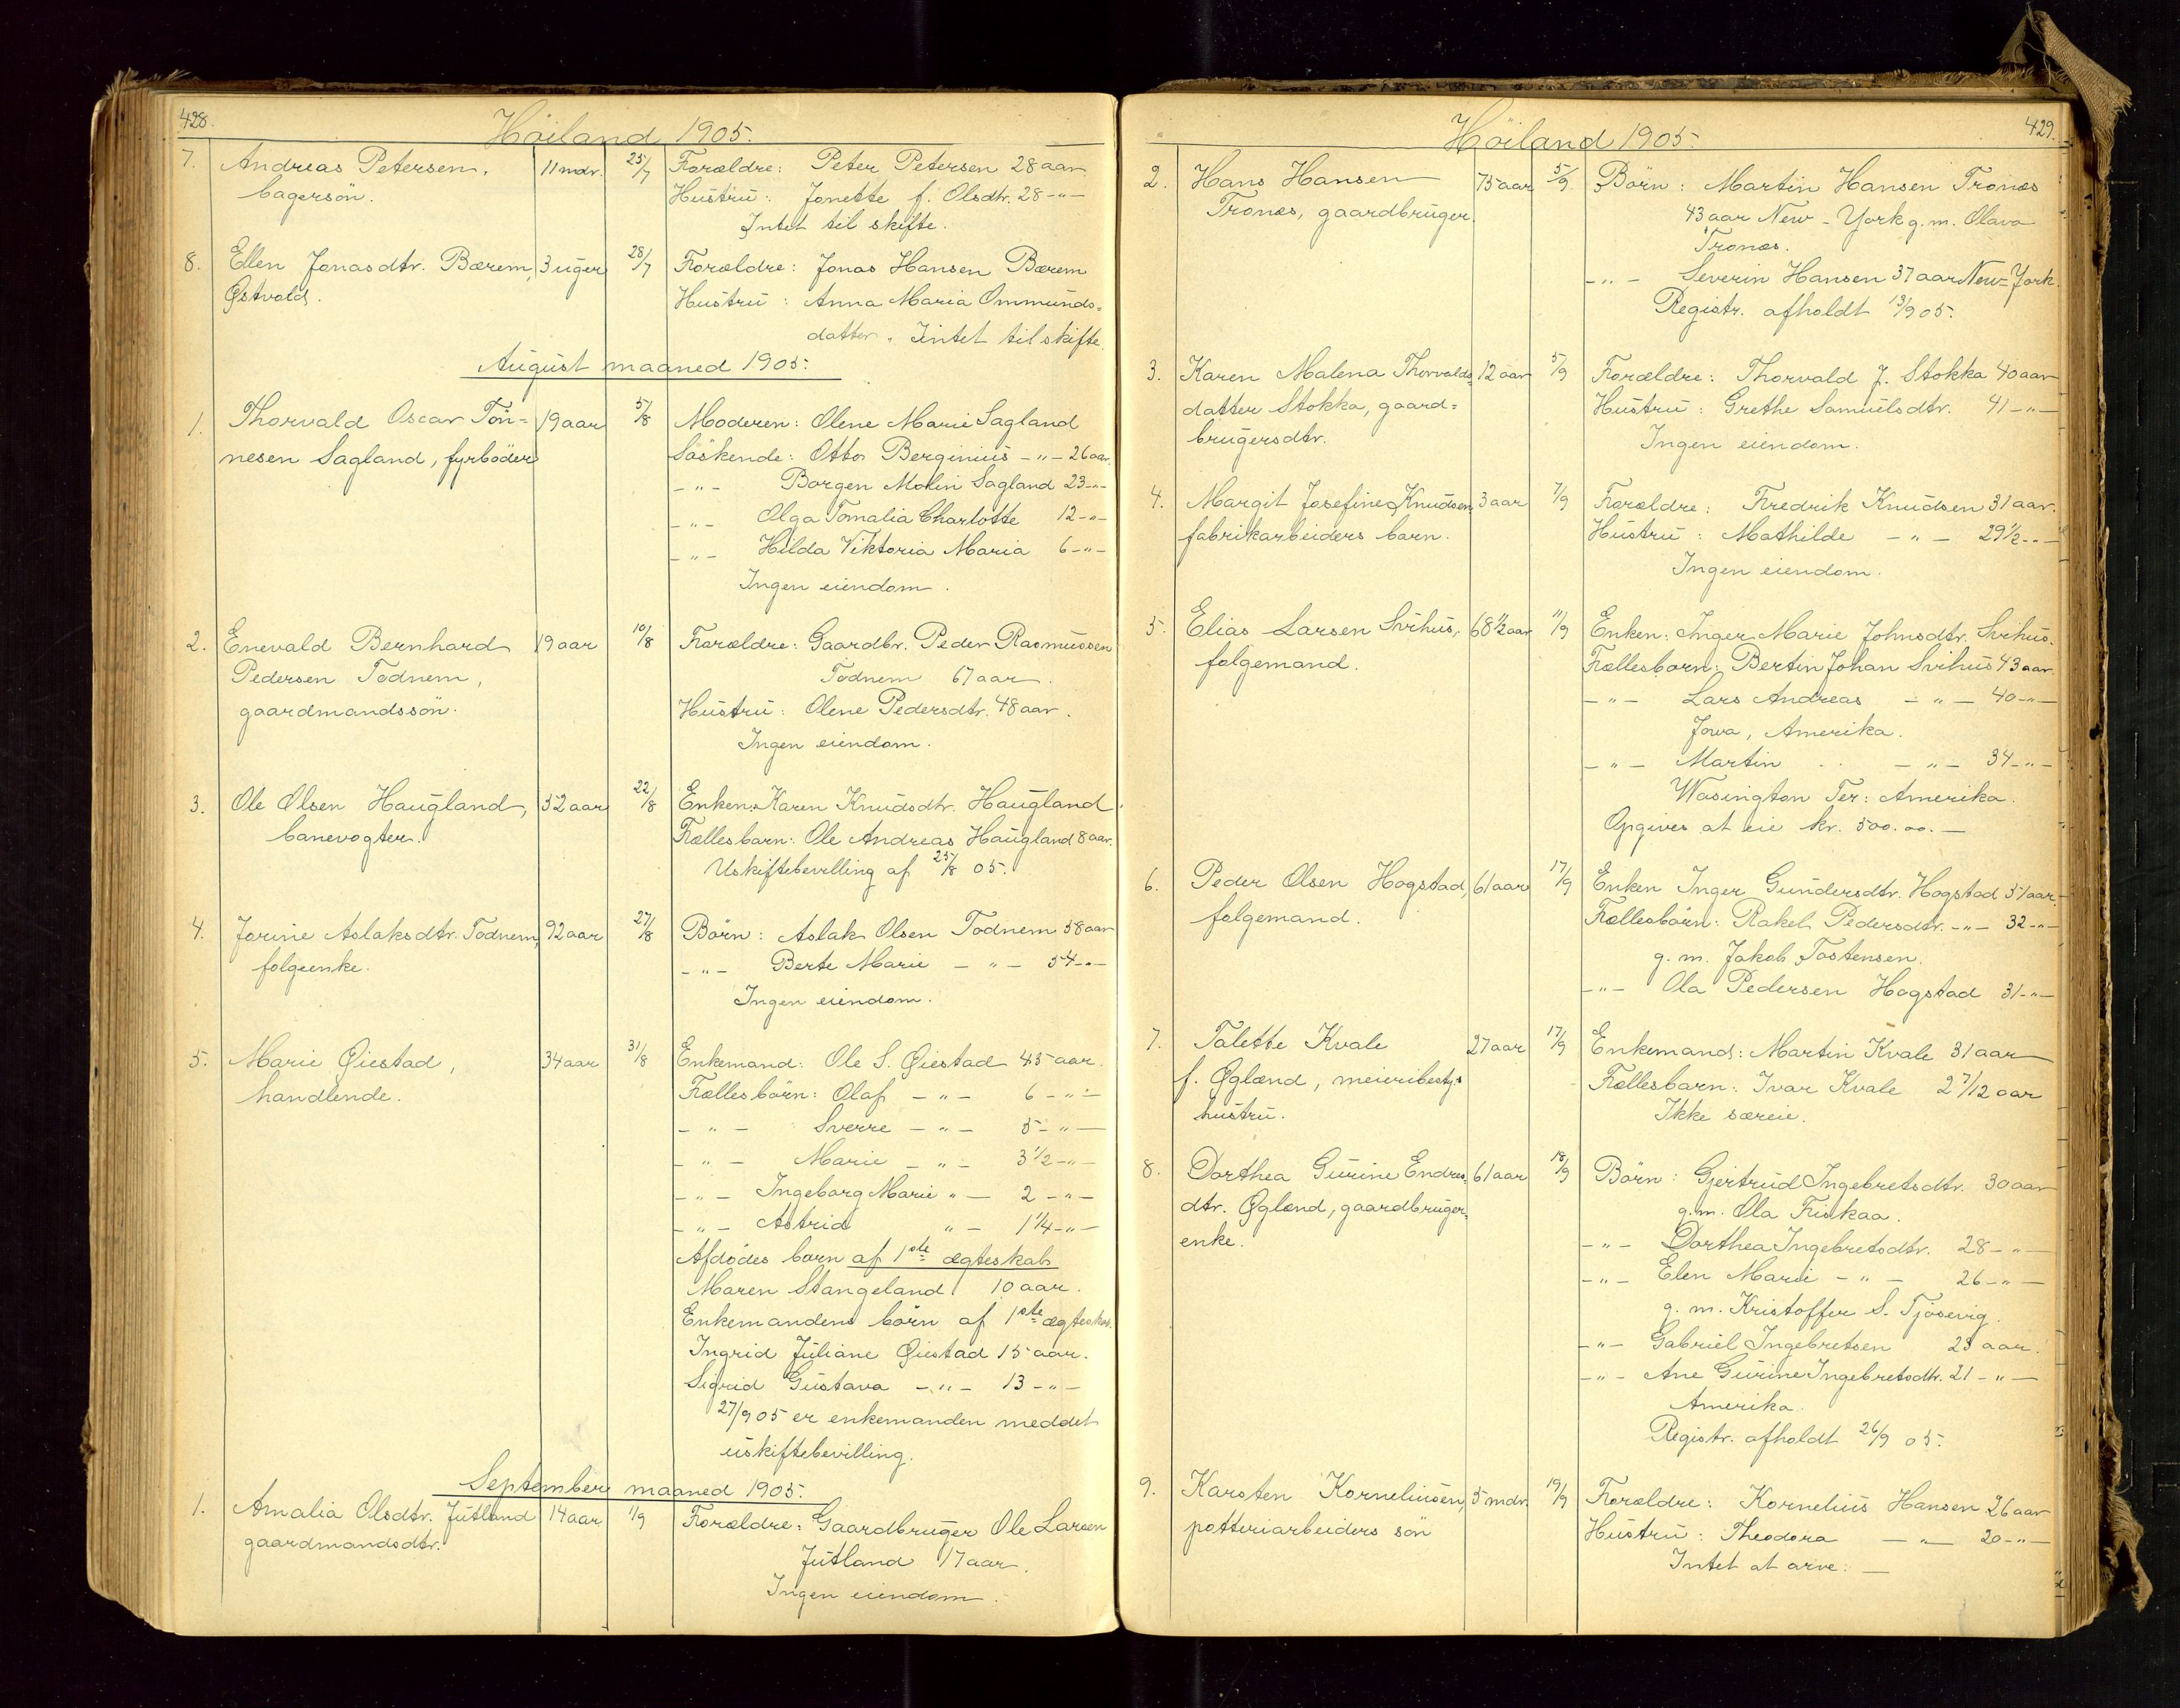 428.
Höiland 1905.
7. Andreas Petersen, 11 mdr. 25/7 Forældre: Peter Petersen 28 aar
bagersön. Hustru: Jonette f. Olsdtr. 28 -"-
Intet til skifte.
8. Ellen Jonasdtr. Bærem, 3 uger 28/7 Forældre: Jonas Hansen Bærem
Østvold. Hustru: Anna Maria Ommunds-
datter. Intet til skifte.
August maaned 1905:
1. Thorvald Oscar Tön- 19 aar 5/8 Moderen: Olene Marie Sagland
nesen Sagland, fyrböder Söskende: Otto Berginius -"- 26 aar.
-"- Borgen Malin Sagland 23 -"-
-"- Olga Tomalia Charlotte 12 -"-
-"- Hilda Viktoria Maria 6 -"-
Ingen eiendom.
2. Enevald Bernhard 19 aar 10/8 Forældre: Gaardbr. Peder Rasmussen
Pedersen Todnem, Todnem 67 aar.
gaardmandssön. Hustru: Olene Pedersdtr. 48 aar.
Ingen eiendom.
3. Ole Olsen Haugland, 52 aar 22/8 Enken: Karen Knudsdtr. Haugland.
banevogter. Fællesbarn: Ole Andreas Haugland 8 aar.
Uskiftebevilling af 25/8 05.
4. Jorine Aslaksdtr. Todnem, 92 aar 27/8 Börn: Aslak Olsen Todnem 58 aar
folgeenke. -"- Berte Marie -"- 54 -"-
Ingen eiendom.
5. Marie Øiestad, 34 aar 31/8 Enkemand: Ole S. Øiestad 45 aar.
handlende. Fællesbörn: Olaf -"- 6 -"-
-"- Sverre -"- 5 -"-
-"- Marie -"- 3 1/2 -"-
-"- Ingeborg Marie " - 2 -"-
-"- Astrid " - 1 1/4 -"-
Afdödes barn af 1ste ægteskab
Maren Stangeland 10 aar.
Enkemandens börn af 1ste ægtesk.
Ingrid Juliane Øiestad 15 aar.
Sigrid Gustava -"- 13 -"-
27/9 05 er enkemanden meddelt
uskiftebevilling.
September maaned 1905.
1. Amalia Olsdtr. Jutland 14 aar 1/9 Forældre: Gaardbruger Ole Larsen
gaardmandsdtr. Jutland 17 aar.
Ingen eiendom.
429.
Höiland 1905
2. Hans Hansen 75 aar 5/9. Börn: Martin Hansen Tronæs
Tronæs, gaardbruger. 43 aar New-York g. m. Olava
Tronæs.
-"- Severin Hansen 37 aar New-York.
Registr. afholdt 13/9 05.
3. Karen Malena Thorvalds- 12 aar 5/9 Forældre: Thorvald J. Stokka 40 aar
datter Stokka, gaard- Hustru: Grethe Samuelsdtr. 41 -"-
brugersdtr. Ingen eiendom.
4. Margit Josefine Knudsen, 3 aar 7/9 Forældre: Fredrik Knudsen 31 aar.
fabrikarbeiders barn. Hustru: Mathilde -"- 29 1/2 -"-
Ingen eiendom.
5. Elias Larsen Svihus, 68 1/2 aar 11/9 Enken: Inger Marie Johnsdtr. Svihus.
folgemand. Fællesbarn: Bertin Johan Svihus 43 aar.
-"- Lars Andreas -"- 40 -"-
Jowa, Amerika.
-"- Martin -"- 34 -"-
Wasington Ter: Amerika.
Opgives at eie kr. 500.00. -
6. Peder Olsen Hogstad, 61 aar 17/9 Enken Inger Gundersdtr. Hogstad 51 aar.
folgemand. Fællesbörn: Rakel Pedersdtr. -"- 32 -"-
g. m. Jakob Tostensen.
-"- Ola Pedersen Hogstad 31 -"-
7. Talette Kvale 27 aar 17/9 Enkemand: Martin Kvale 31 aar
f. Øglænd, meieribesty.s Fællesbarn: Ivar Kvale 2 7/12 aar
hustru. Ikke særeie.
8. Dorthea Gurine Endres- 61 aar 18/9 Börn: Gjertrud Ingebretsdtr. 30 aar
dtr. Øglænd, gaardbruger- g. m. Ola Friskaa.
enke. -"- Dorthea Ingebretsdtr. 28 -"-
-"- Elen Marie -"- 26 -"-
g. m. Kristoffer S. Tjösevig.
-"- Gabriel Ingebretsen 23 aar.
-"- Ane Gurine Ingebretsdtr. 21 -"-
Amerika.
Registr. afholdt 26/9 05.
9. Karsten Korneliusen, 5 mdr. 19/9 Forældre: Kornelius Hansen 26 aar
potteriarbeiders sön Hustru: Theodora -"- 20 -"-
Intet at arve: -